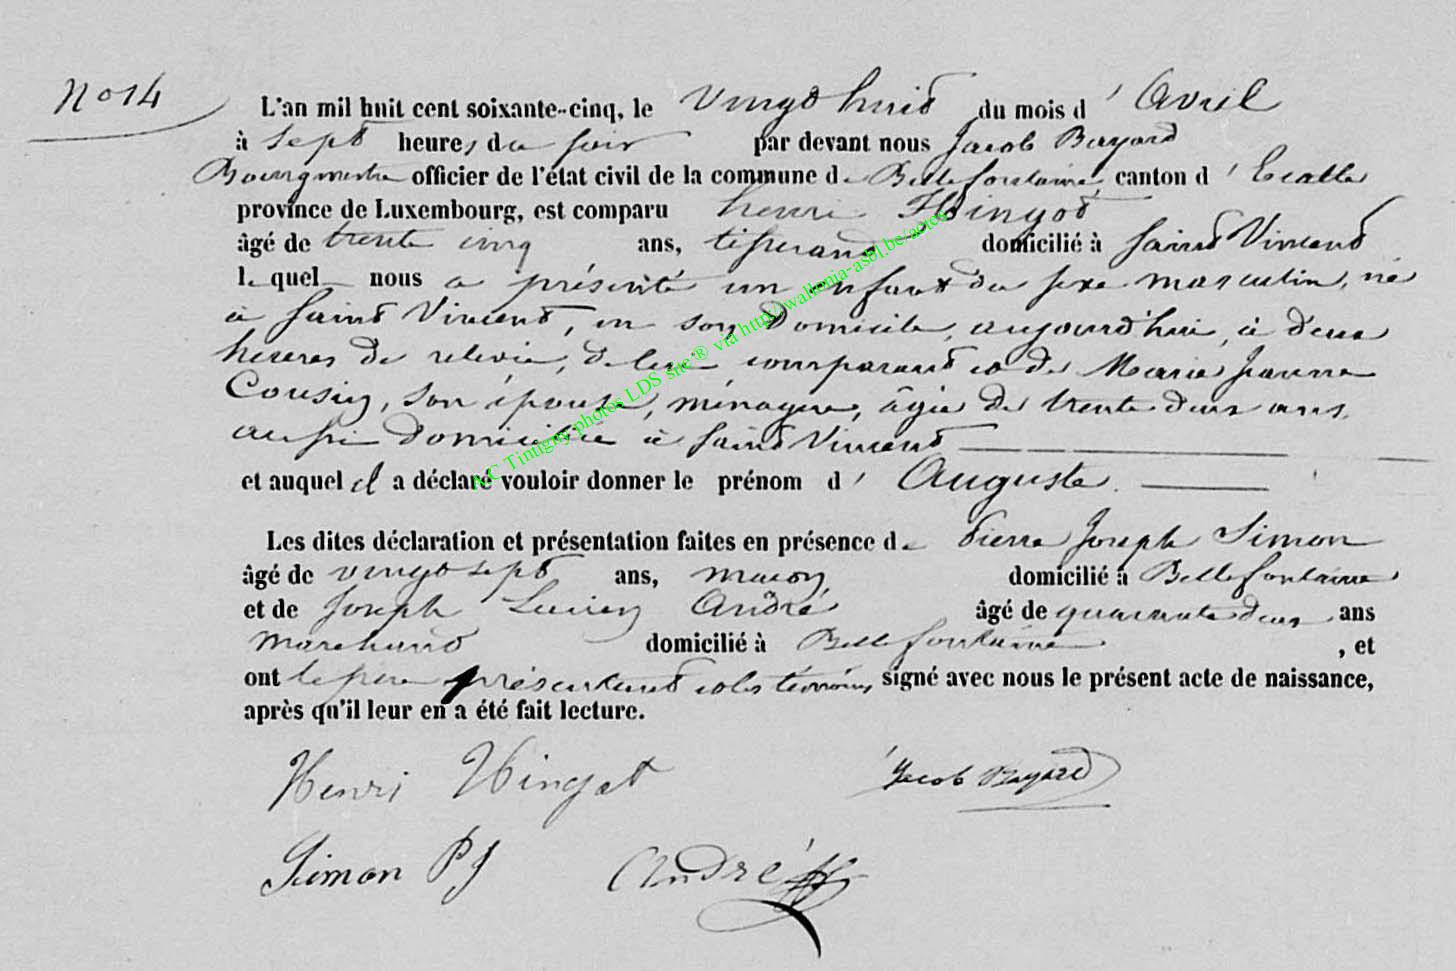 No 14
L'an mil huit cent soixante-cinq, le vingt huit du mois d'Avril
à sept heures du soir par devant nous Jacob Bayard
Bourgmestre officier de l'état civil de la commune de Bellefontaine, canton d'Etalle
province de Luxembourg, est comparu henri Hingot
âgé de trente cinq ans, tisserand domicilié à Saint Vincent
lequel nous a présenté un enfant du sexe masculin, né
à Saint Vincent, en son domicile, aujourd'hui, à deux
heures de relevée, de lui comparant et de Marie Jeanne
Cousin, son épouse, ménagère, âgée de trente deux ans,
aussi domiciliée à Saint Vincent
et auquel il a déclaré vouloir donner le prénom d'Auguste.
Les dites déclaration et présentation faites en présence de Pierre Joseph Simon
âgé de vingt sept ans, maçon domicilié à Bellefontaine
et de Joseph Lucien André âgé de quarante deux ans
marchand domicilié à Bellefontaine, et
ont le père présentant et les témoins signé avec nous le présent acte de naissance,
après qu'il leur en a été fait lecture.
Henri Hingot Jacob Bayard
Simon PJ André
AC Tintigny photos LDS site ® via http://wallonia-asbl.be/actes